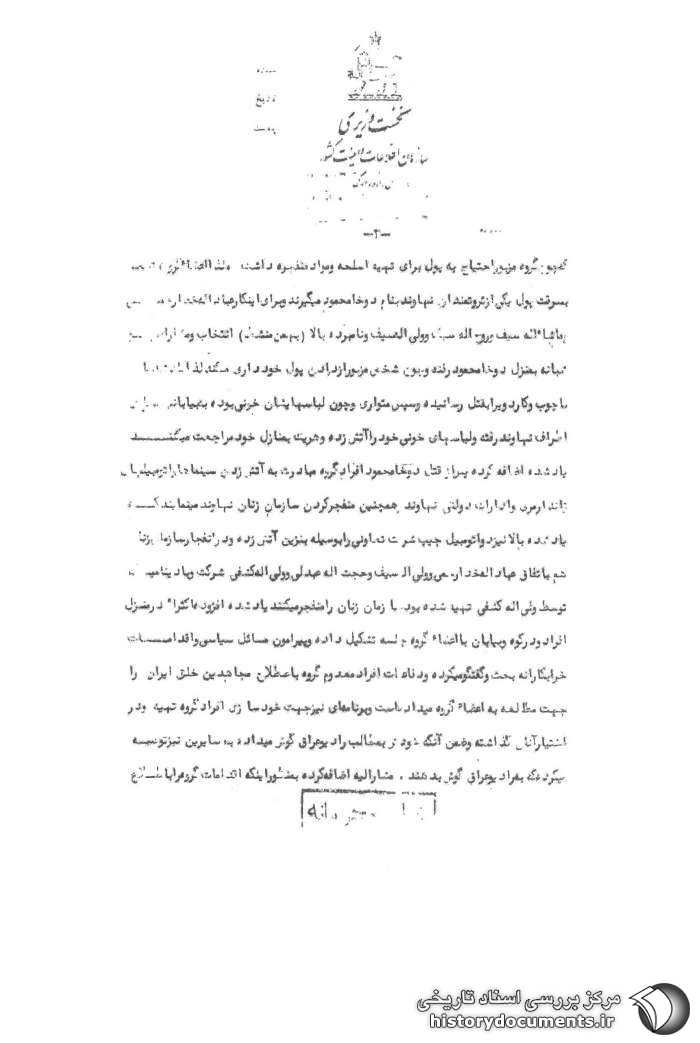 شماره
تاریخ
پیوست
نخست وزیری
سازمان اطلاعات و امنیت کشور
-۲-
گروه مزبور احتیاج به پول برای تهیه اسلحه ومواد منفجره داشت
بسرقت پول یکی از ثروتمندان نهاوند بنام دوخا محمود میگیرند وبرای اینکار عباد اله خدا
ماشا اله سیف وروح اله سیف وولی اله سیف ونامبرده بالا (بهمن منشط) انتخاب و
شبانه بمنزل دوخا محمود رفته وچون شخص مزبور ازدادن پول خود داری میکند لذا
با چوب وکارد ویرا بقتل رسانیده وسپس متواری وچون لباسهایشان خونی بوده به بیابانهای
اطراف نهاوند رفته ولباسهای خونی خود را آتش زده وهریک بمنازل خود مراجعت میکنند
یاد شده اضافه کرده پس از قتل دوخا محمود افراد گروه مبادرت به آتش زدن سینما ها و اتومبیلهای
ژاندارمری وادارات دولتی نهاوند وهمچنین منفجر کردن سازمان زنان نهاوند مینمایند که
یاد شده بالا نیز دو اتومبیل جیپ شرکت تعاونی را بوسیله بنزین آتش زده ودر انفجار سازمان زنان
هم باتفاق عباد اله خدا رحمی وولی اله سیف وحجت اله عبدلی وولی اله کشفی شرکت وبا دینامیت که
توسط ولی اله کشفی تهیه شده بود سازمان زنان را منفجر میکنند یاد شده افزوده اکثرا" در منزل
افراد ودر کوه وبیابان با اعضاء گروه جلسه تشکیل داده وپیرامون مسائل سیاسی واقدامات
خرابکارانه بحث وگفتگو میکرده ودفاعیات افراد معدوم گروه باصطلاح مجاهدین خلق ایران را
جهت مطالعه به اعضاء گروه میداده است وبرنامه‌ای نیز جهت خود سازی افراد گروه تهیه ودر
اختیار آنان گذاشته وضمن آنکه خود نیز بمطالب رادیو عراق گوش میداده به سایرین نیز توصیه
میکرده که برادیو عراق گوش بدهند . مشارالیه اضافه کرده بمنظور اینکه اقدامات گروه را باطلاع
محرمانه
مرکز بررسی اسناد تاریخی
historydocuments.ir